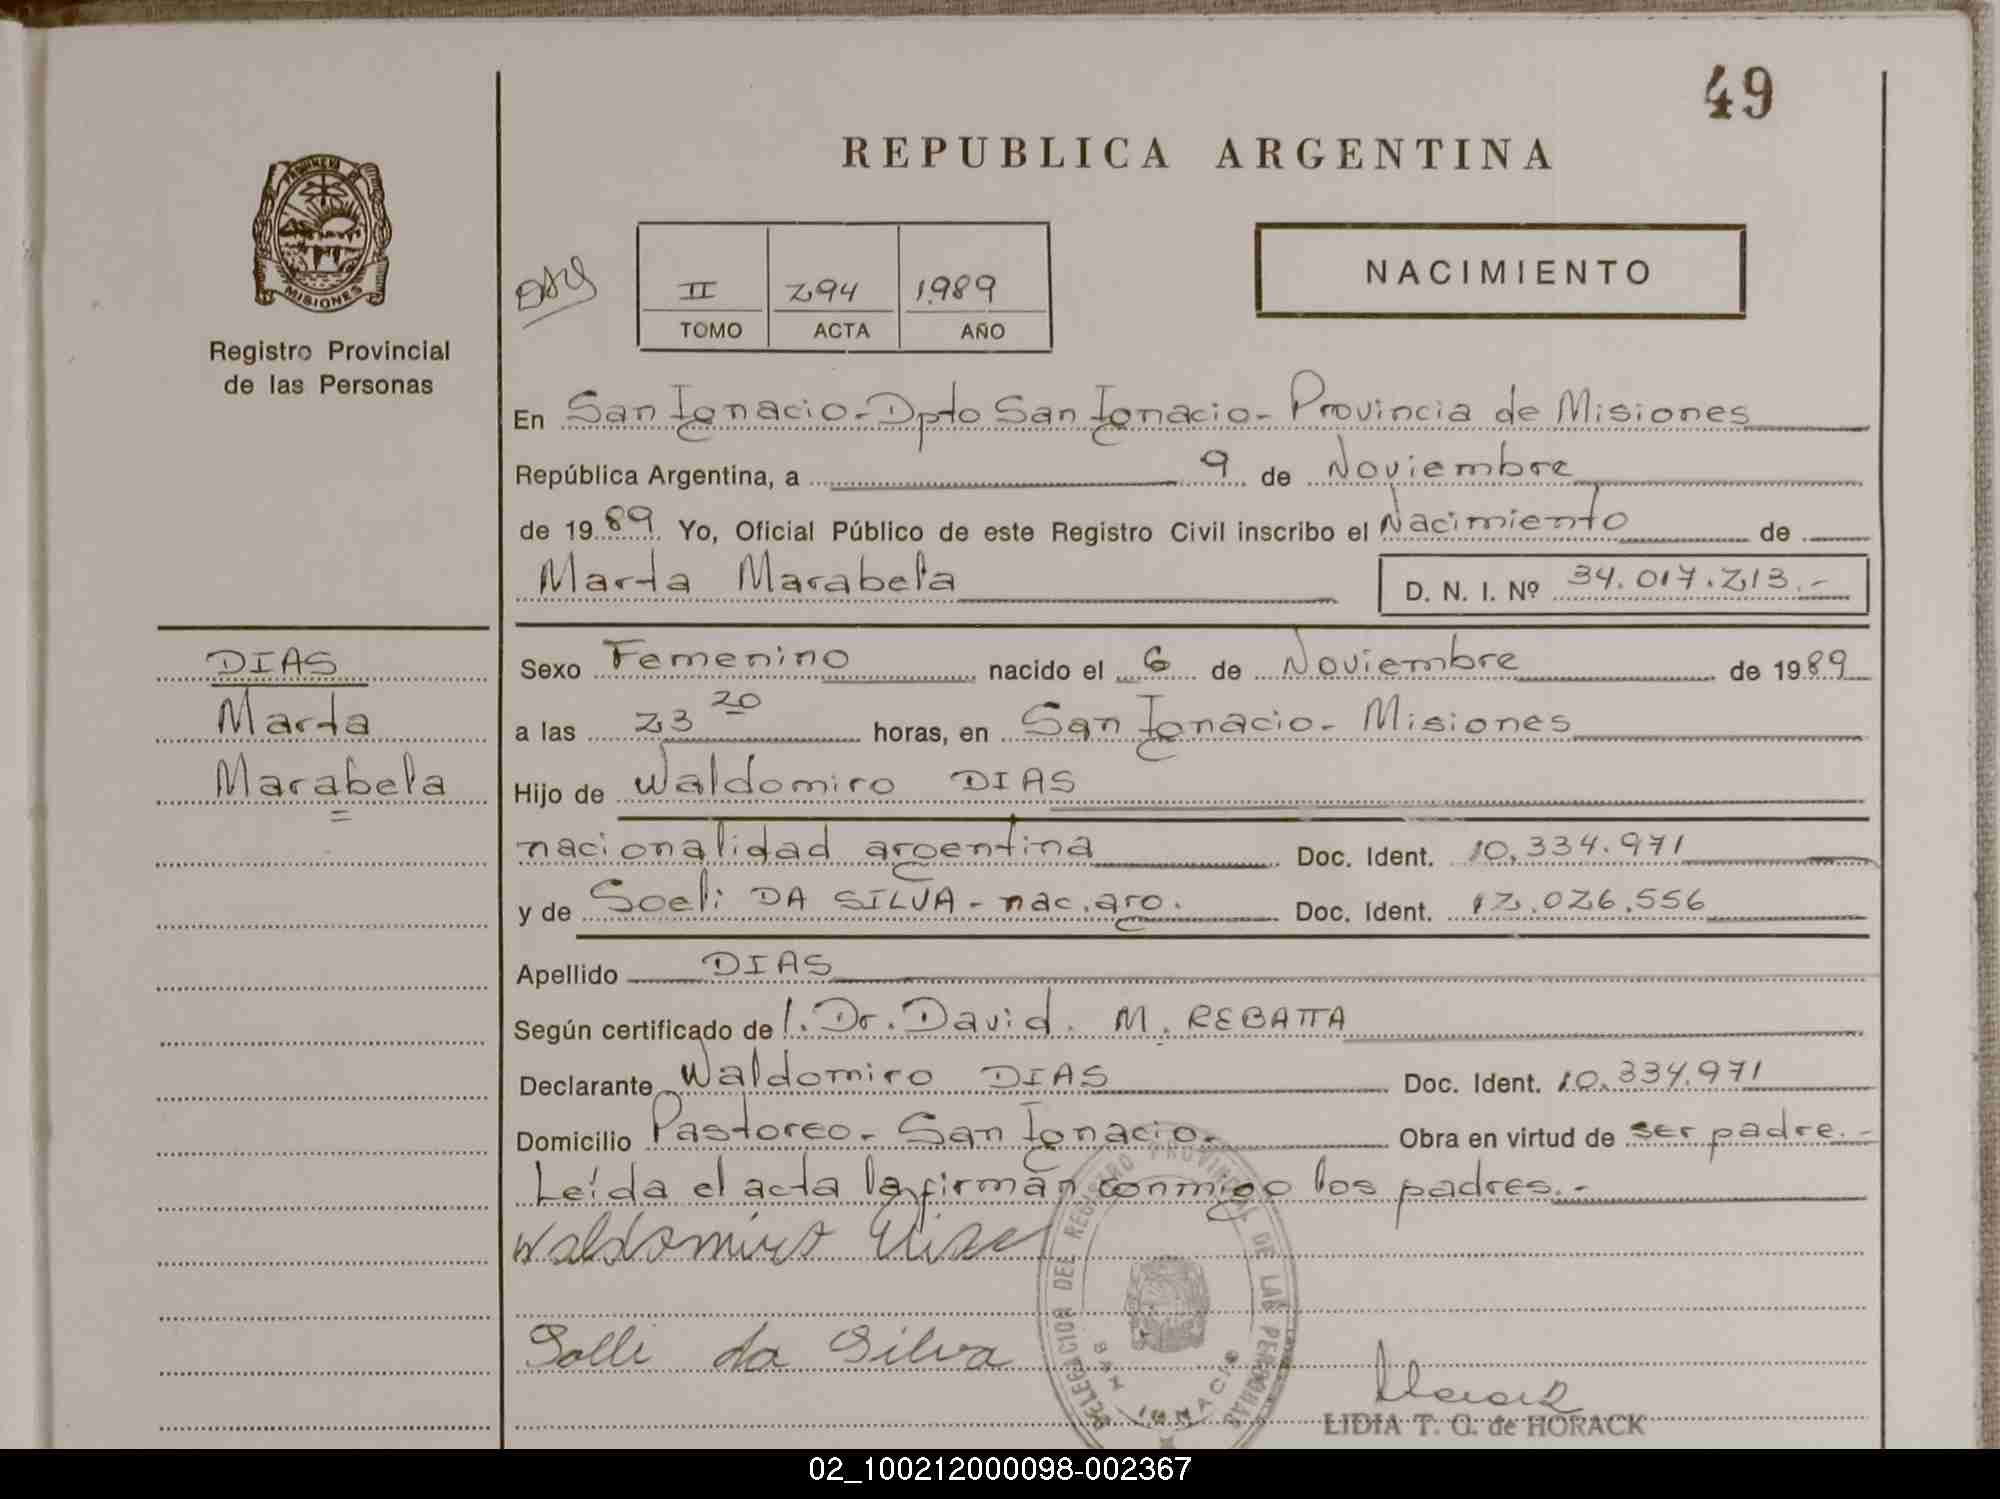 49
REPUBLICA ARGENTINA
PROVINCIA DE
MISIONES
Registro Provincial
de las Personas
II 294 1989
TOMO ACTA AÑO
NACIMIENTO
En San Ignacio - Dpto San Ignacio - Provincia de Misiones
República Argentina, a 9 de Noviembre
de 1989 Yo, Oficial Público de este Registro Civil inscribo el Nacimiento de
Marta Marabela D. N. I. Nº 34.017.213.-
DIAS
Marta
Marabela
Sexo Femenino nacido el 6 de Noviembre de 1989
a las 23 20 horas, en San Ignacio - Misiones
Hijo de Waldomiro DIAS
nacionalidad argentina Doc. Ident. 10.334.971
y de Soeli DA SILVA - nac. arg. Doc. Ident. 12.026.556
Apellido DIAS
Según certificado de l. Dr. David. M. REBATTA
Declarante Waldomiro DIAS Doc. Ident. 10.334.971
Domicilio Pastoreo - San Ignacio.- Obra en virtud de ser padre.-
Leída el acta la firman conmigo los padres.-
Waldomiro Dias
Solli da Silva
DELEGACION DEL REGISTRO PROVINCIAL DE LAS PERSONAS
SAN IGNACIO
Horack
LIDIA T. O. de HORACK
02_100212000098-002367